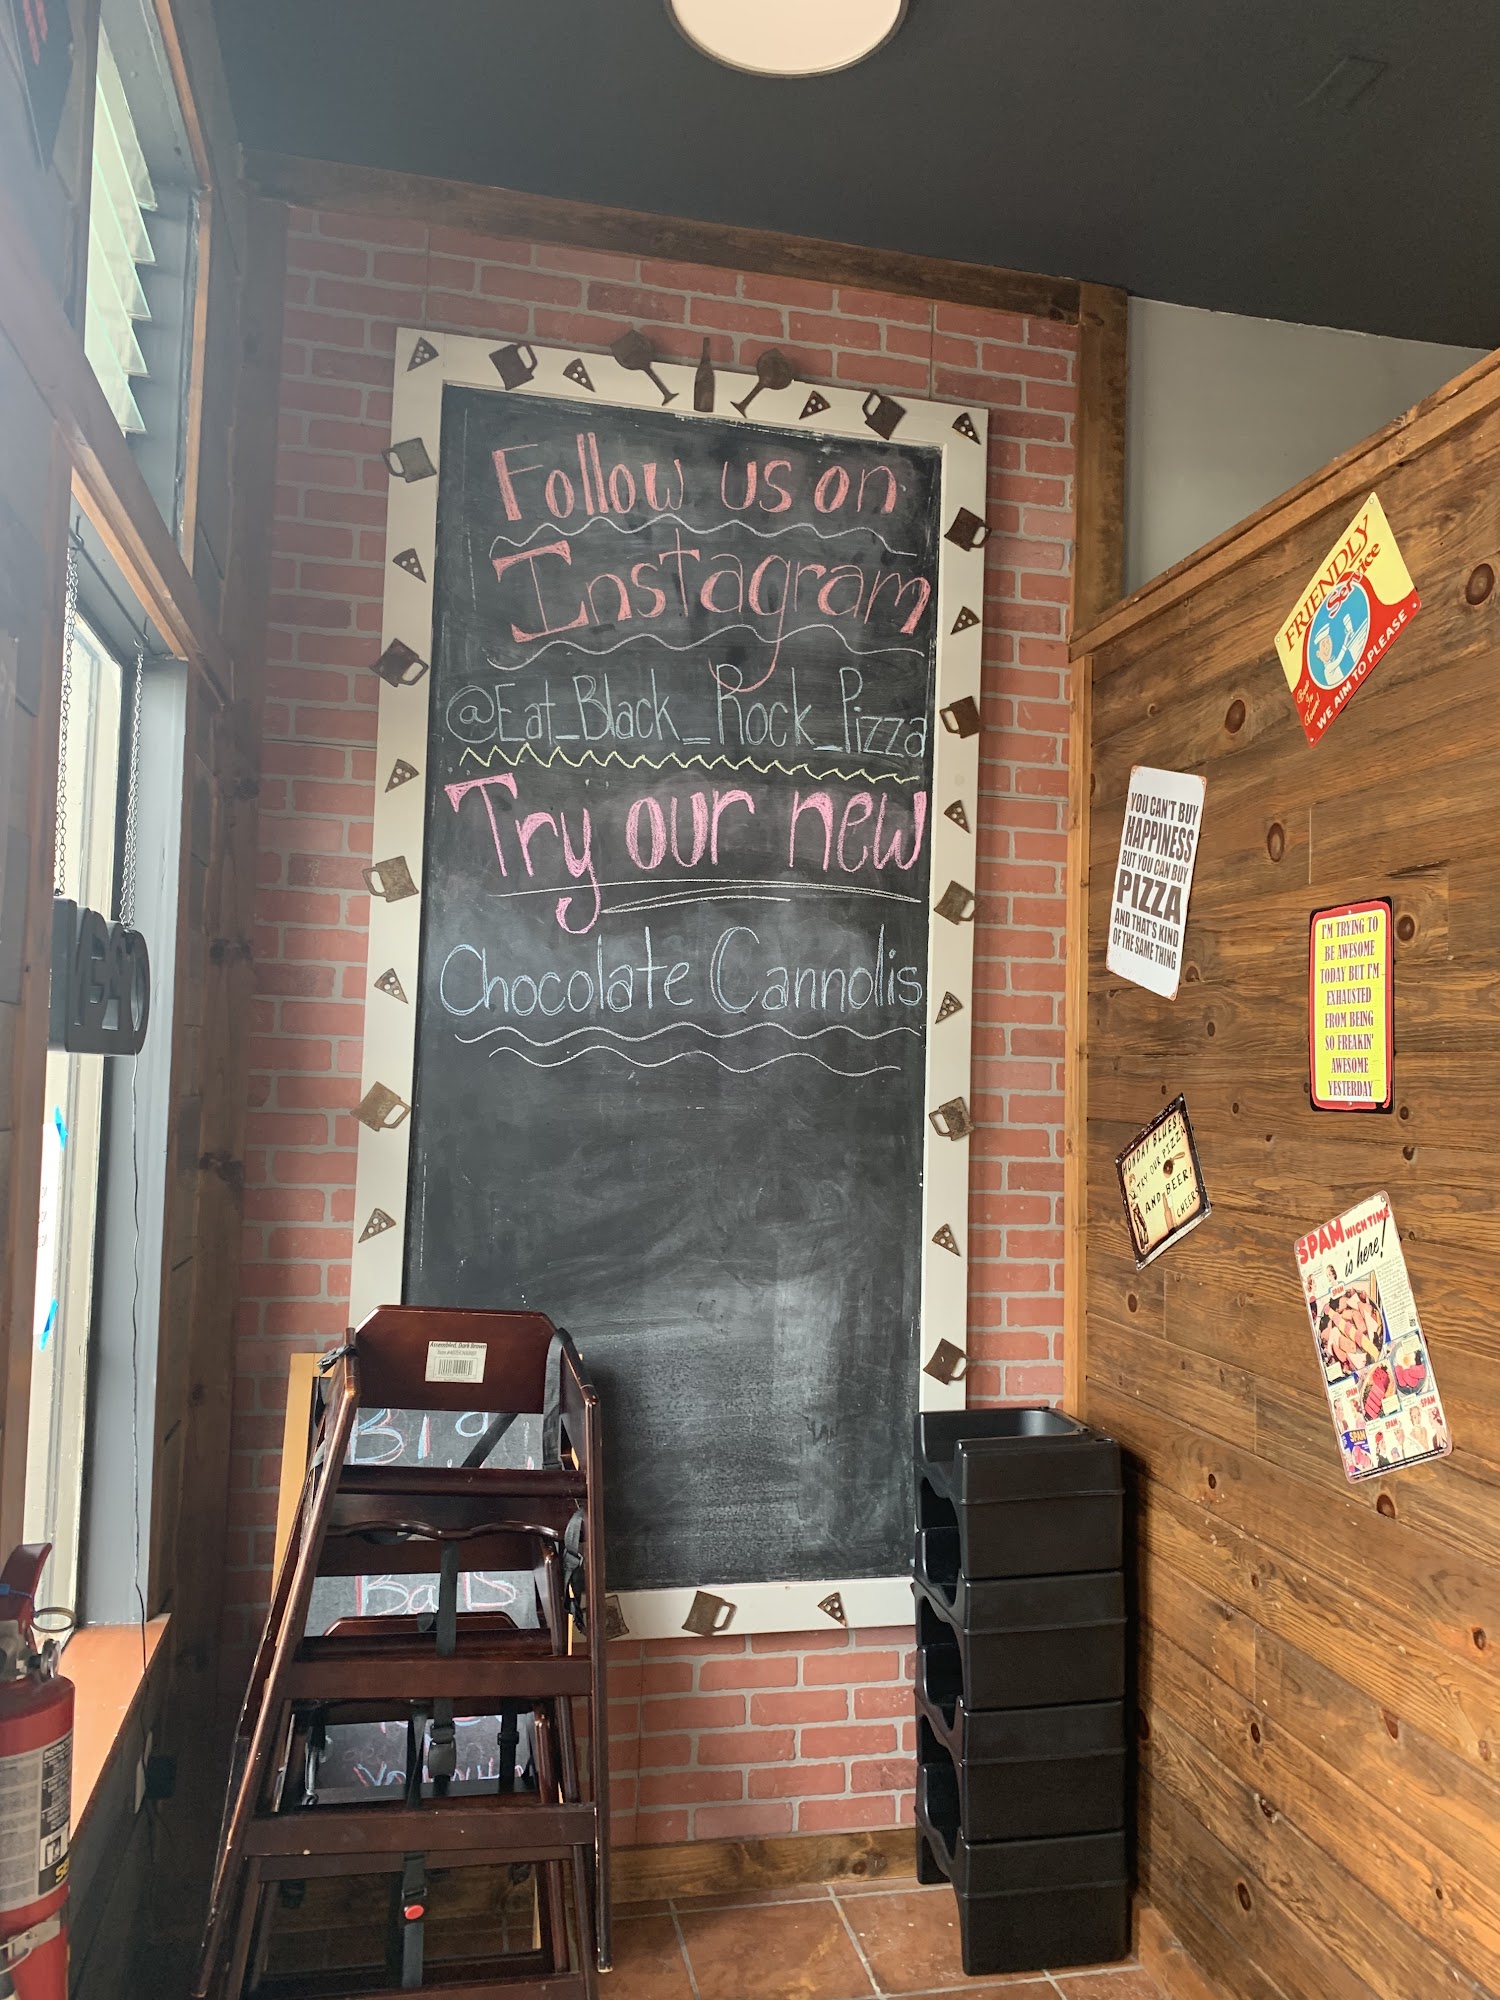 Follow us on
Instagram
@Eat_Black_Rock_Pizza
Try our new
Chocolate Cannollis
FRIENDLY
Service
WE AIM TO PLEASE
YOU CAN'T BUY
HAPPINESS
BUT YOU CAN BUY
PIZZA
AND THAT'S KIND
OF THE SAME THING
I'M TRYING TO
BE AWESOME
TODAY BUT I'M
EXHAUSTED
FROM BEING
SO FREAKIN'
AWESOME
YESTERDAY
MONDAY BLUES!
TRY OUR PIZZA
AND BEER!
CHEERS
SPAMWICH TIME
is here!
SPAM
SPAM
SPAM
SPAM
SPAM
Assembled, Dark Brown
Big
Balls